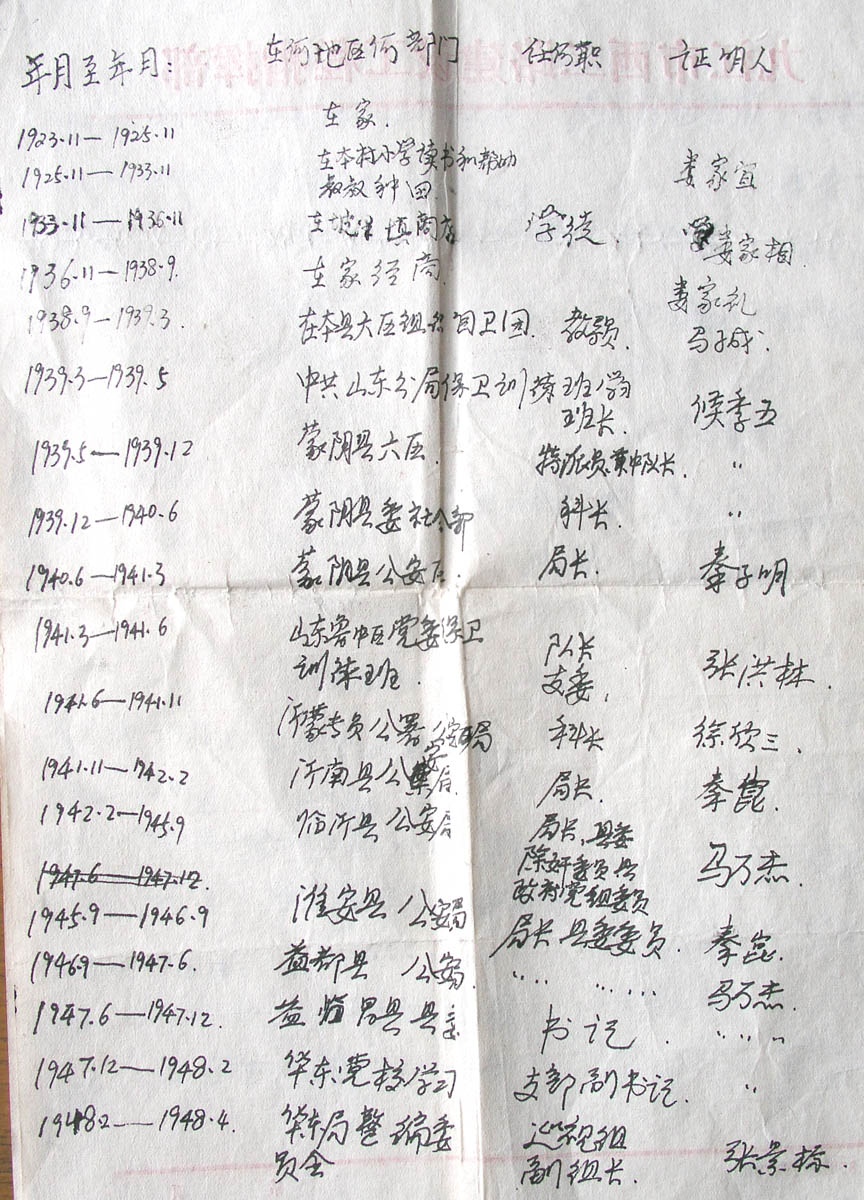 年月至年月: 在何地区何部门 任何职 证明人
1923.11— 1925.11 在家.
1925.11— 1933.11 在本村小学读书和帮助 娄家宜
叔叔种田
1933.11—1936.11 在坡里填商店 学徒. 娄家相.
1936.11—1938.9. 在家经商. 娄家礼
1938.9—1939.3. 在本县六区组织自卫团. 教员. 马子成.
1939.3—1939.5 中共山东分局保卫训练班学习 侯季五
班长.
1939.5—1939.12 蒙阴县六区. 特派员兼中队长. 〃
1939.12—1940.6 蒙阴县委社会部 科长. 〃
1940.6—1941.3 蒙阴县公安局. 局长. 秦子明
1941.3—1941.6 山东鲁中区党委保卫 队长
训练班. 支委. 张洪林.
1941.6—1941.11 沂蒙专员公署公安局 科长 徐欣三.
1941.11—1942.2 沂南县公安局. 局长. 秦崑.
1942.2—1945.9 临沂县公安局 局长.县委
除奸委员县 马万杰.
政府党组委员
1947.6—1947.12.
1945.9—1946.9 淮安县公安局 局长县委委员. 秦崑.
1946.9—1947.6. 益都县 公安局 〃 〃 马万杰.
1947.6—1947.12. 益临昌县县委 书记. 〃 〃
1947.12—1948.2 华东党校学习 支部副书记. 〃
1948.2—1948.4. 华东局整编委 巡视组
员会 副组长. 张景栋.